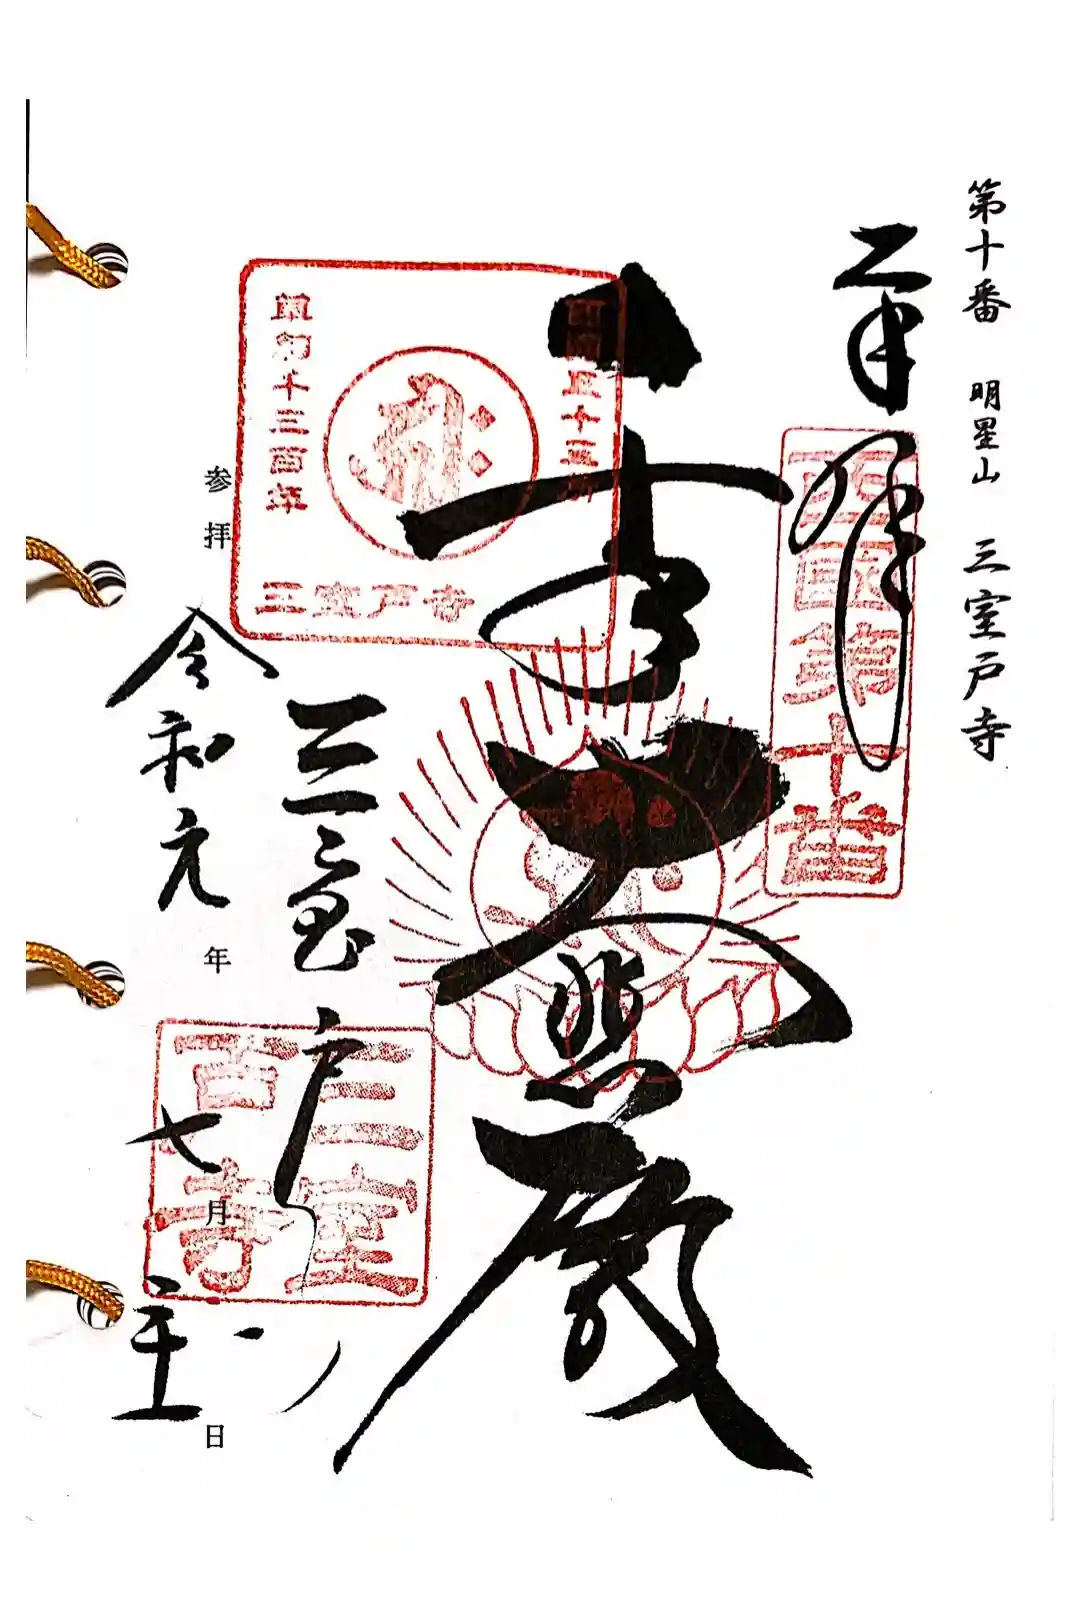 第十番 明星山 三室戸寺
奉拝
西國第十番
大悲殿
西国三十三所
草創千三百年
三室戸寺
三室戸寺
三室戸寺
参拝
令和元年七月 日